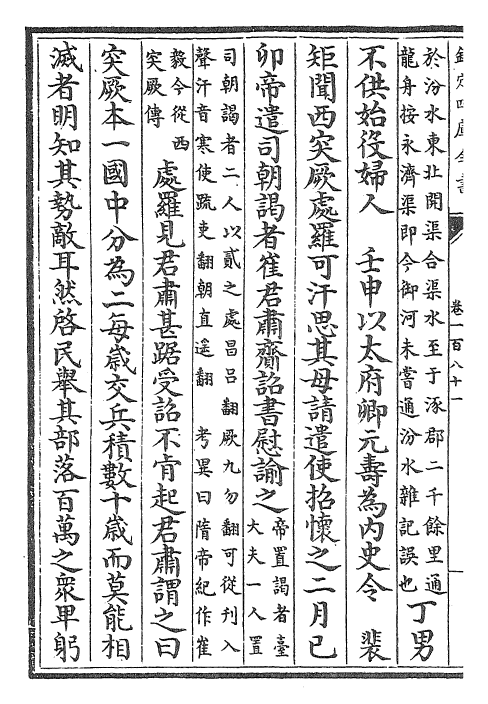 欽定四庫全書
卷一百八十一
於汾水東北開渠合渠水至于涿郡二千餘里通
龍舟按永濟渠即今御河未嘗通汾水雜記誤也
丁男
不供始役婦人　壬申以太府卿元壽為内史令　裴
矩聞西突厥處羅可汗思其母請遣使招懷之二月己
卯帝遣司朝謁者崔君肅齎詔書慰諭之
帝置謁者臺
大夫一人置
司朝謁者二人以貳之處昌吕翻厥九勿翻可從刋入
聲汗音寒使疏吏翻朝直遥翻　考異曰隋帝紀作崔
毅今從西
突厥傳
處羅見君肅甚踞受詔不肯起君肅謂之曰
突厥本一國中分為二每歲交兵積數十歲而莫能相
滅者明知其勢敵耳然啓民舉其部落百萬之衆卑躬